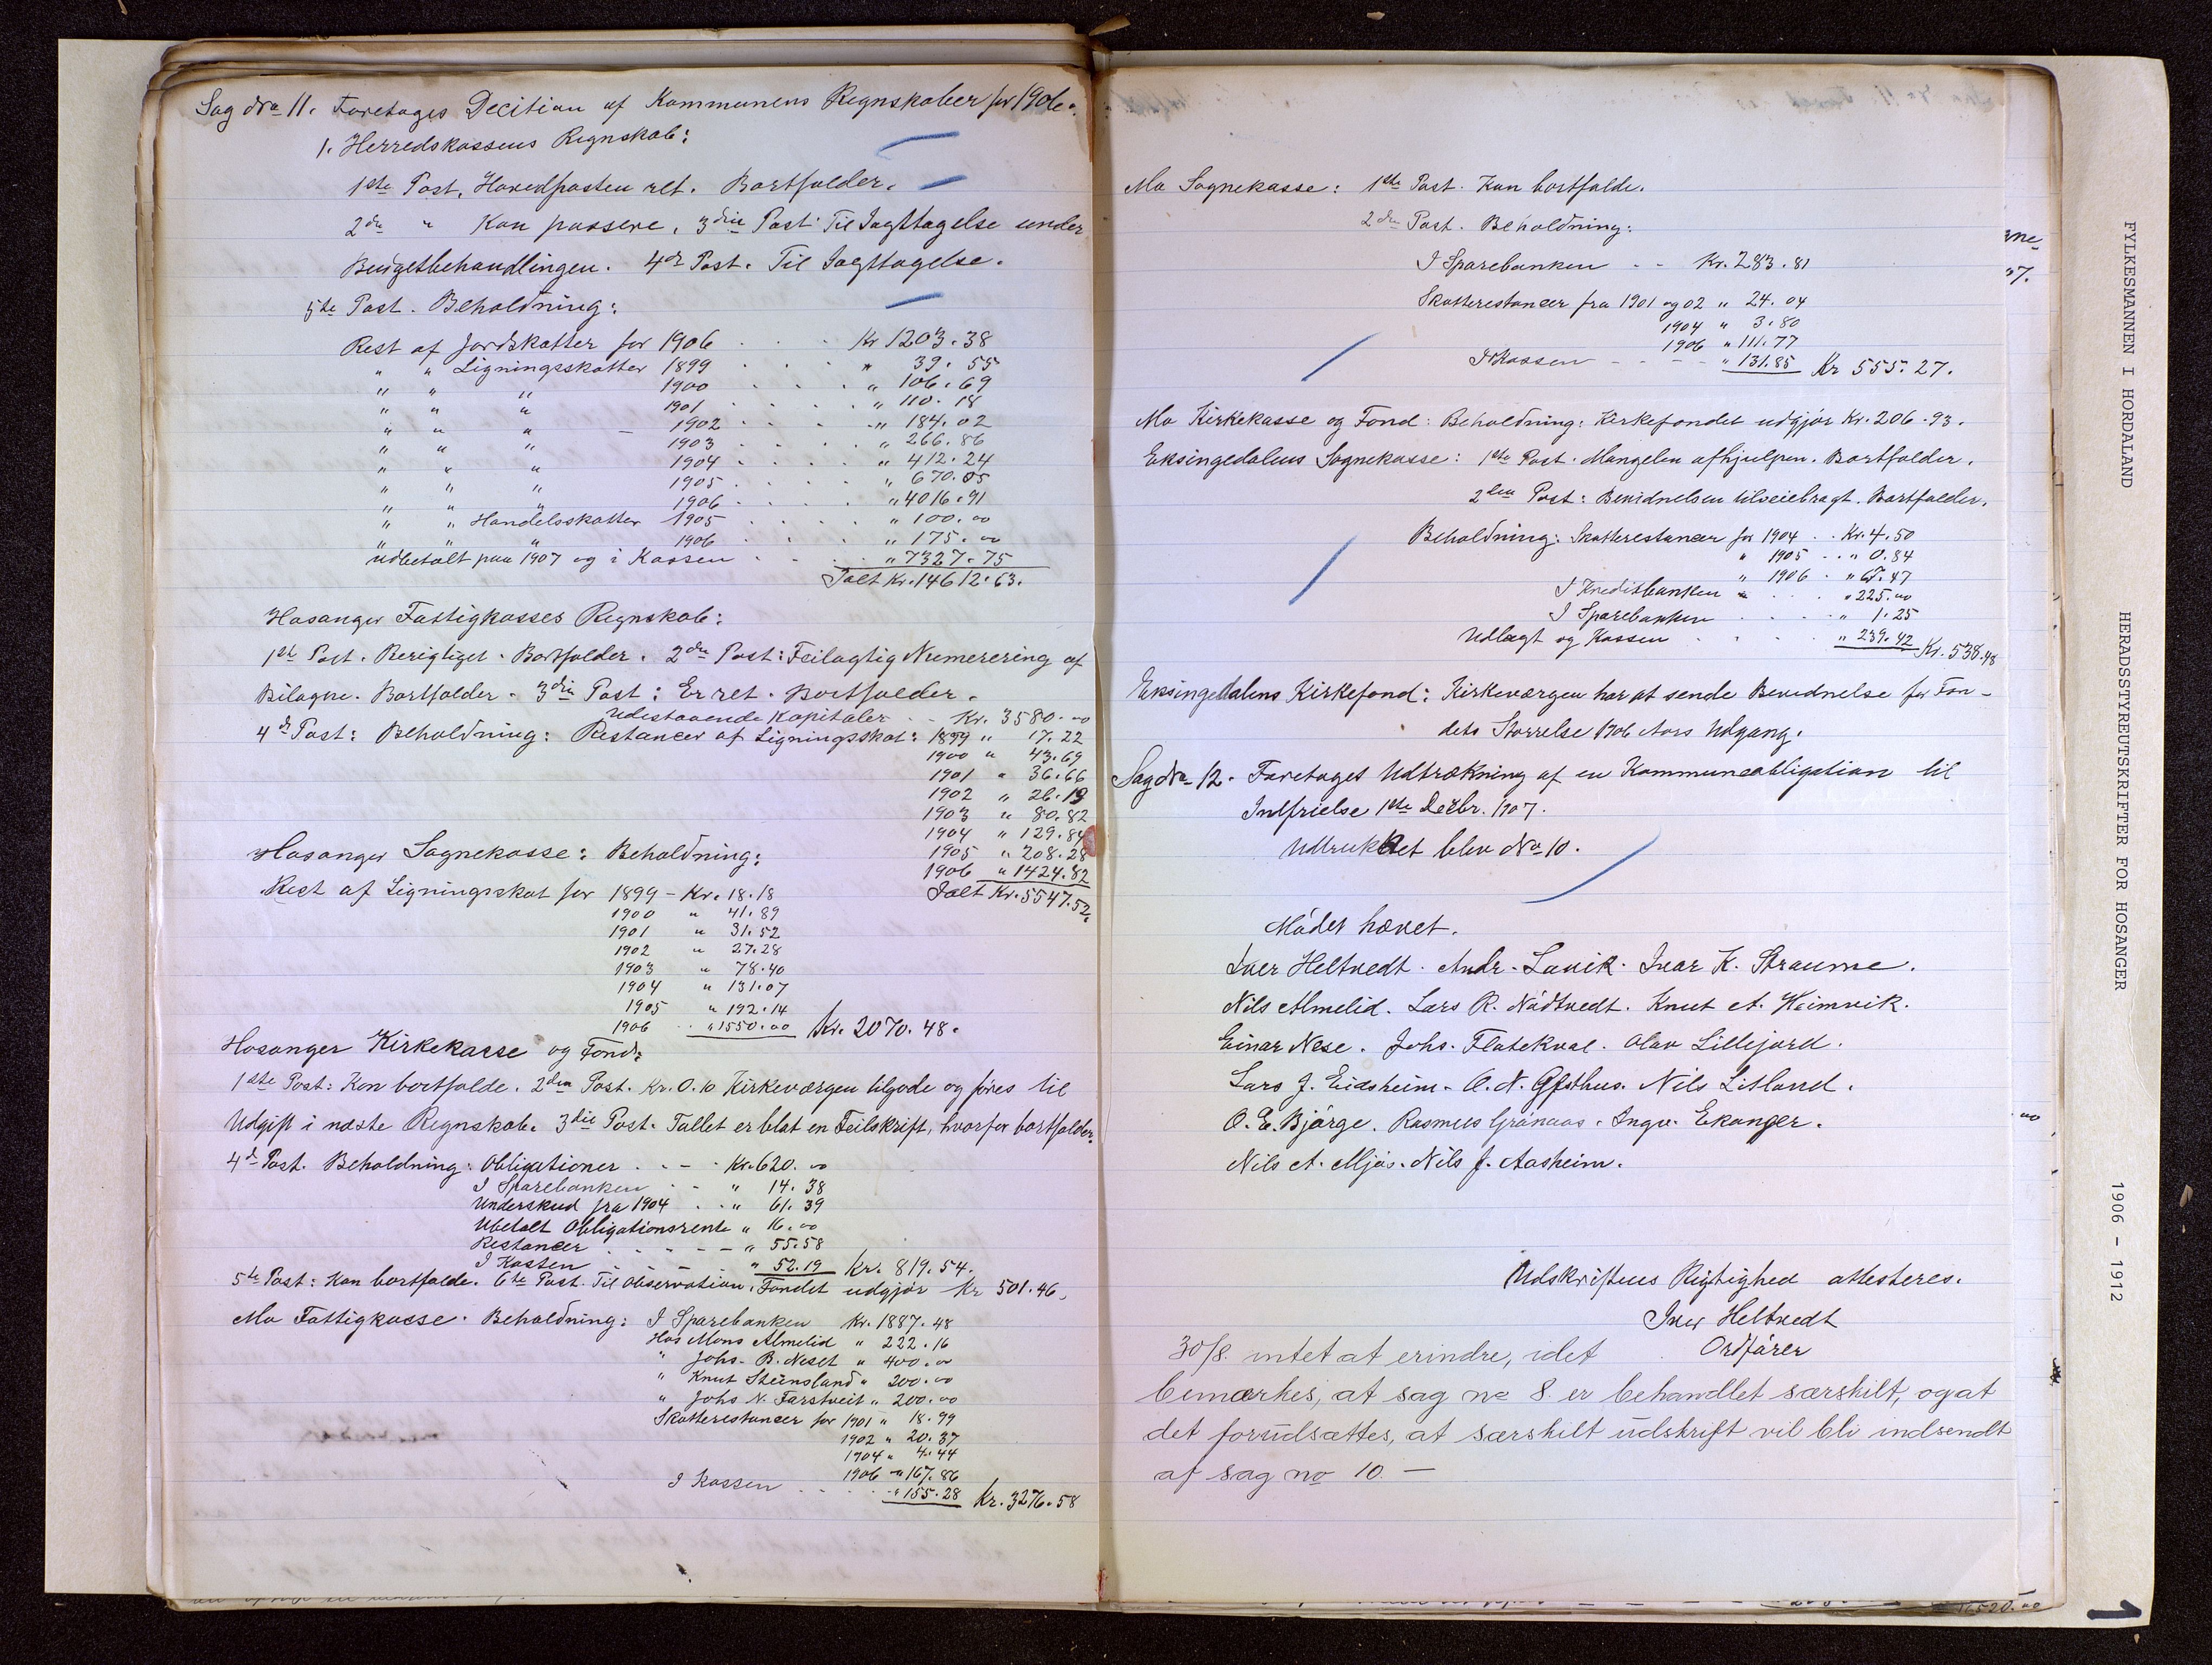 Sag No 11. Foretages Decition af Kommunens Regnskaber for 1906.
1. Herredskassens Regnskab:
1ste Post. Hovedposten ret. Bortfalder.
2den " Kan passere. 3die Post Til Iagttagelse under
Budgetbehandlingen. 4de Post. Til Iagttagelse.
5te Post. Beholdning:
Rest af Jordskatter for 1906 . . . Kr 1203.38
" " Ligningsskatter 1899 . . . " 39.55
" " " 1900 . . . " 106.69
" " " 1901 . . . " 110.18
" " " – 1902 . . . " 184.02
" " " 1903 . . . " 266.86
" " " 1904 . . . " 412.24
" " " 1905 . . . " 670.05
" " " 1906 . . . " 4016.91
" " Handelsskatter 1905 . . . " 100.00
" " " 1906 . . . " 175.00
Udbetalt paa 1907 og i Kassen . . . " 7327.75
Ialt Kr. 14612.63.
Hosanger Fattigkasses Regnskab:
1ste Post. Berigtiget. Bortfalder. 2den Post: Feilagtig Numerering af
Bilagne. Bortfalder. 3die Post: Er ret. Bortfalder.
Udestaaende Kapitaler . - Kr. 3580.00
4de Post: Beholdning: Restancer af Ligningsskat: 1899 " 17.22
1900 " 43.69
1901 " 36.66
1902 " 26.19
1903 " 80.82
1904 " 129.84
1905 " 208.28
1906 " 1424.82
Ialt Kr. 5547.52.
Hosanger Sognekasse: Beholdning:
Rest af Ligningsskat for 1899 – Kr. 18.18
1900 " 41.89
1901 " 31.52
1902 " 27.28
1903 " 78.40
1904 " 131.07
1905 " 192.14
1906 . . " 1550.00 Kr. 2070.48.
Hosanger Kirkekasse og Fond:
1ste Post: Kan bortfalde. 2den Post. Kr. 0.10 Kirkeværgen tilgode og føres til
Udgift i næste Regnskab. 3die Post. Tallet er blot en Feilskrift, hvorfor bortfalder.
4de Post. Beholdning: Obligationer . . - . Kr. 620.00
I Sparebanken . . " 14.38
Underskud fra 1904 . . " 61.39
Ubetalt Obligationsrente " 16.00
Restancer . . . – – " 55.58
I Kassen . . . " 52.19 Kr. 819.54.
5te Post: Kan bortfalde. 6te Post. Til Observation. Fondet udgjør Kr 501.46.
Mo Fattigkasse. Beholdning: I Sparebanken Kr. 1887.48
Hos Mons Almelid " 222.16
" Johs. B. Neset " 400.00
" Knut Steinsland " 200.00
" Johs N. Farstveit " 200.00
Skatterestancer for 1901 " 18.99
1902 " 20.37
1904 " 4.44
1906 " 167.86
I Kassen . . . " 155.28 Kr. 3276.58
Mo Sognekasse: 1ste Post. Kan bortfalde.
2den Post. Beholdning:
I Sparebanken - - Kr. 283.81
Skatterestancer fra 1901 og 02 " 24.04
1904 " 3.80
1906 " 111.77
I Kassen - - - " 131.85 Kr 555.27.
Mo Kirkekasse og Fond: Beholdning: Kirkefondet udgjør Kr. 206.93.
Eksingedalens Sognekasse: 1ste Post. Mangelen afhjulpen. Bortfalder.
2den Post: Bevidnelsen tilveiebragt. Bortfalder.
Beholdning: Skatterestancer for 1904 . . Kr. 4.50
" 1905 . . " 0.84
" 1906 . " 67.47
I Kreditbanken . . . " 225.00
I Sparebanken . . . " 1.25
Udlagt og Kassen . . . " 239.42 Kr. 538.48
Eksingedalens Kirkefond: Kirkeværgen har at sende Bevidnelse for Fon-
dets Størrelse 1906 Aars Udgang.
Sag No 12. Foretages Udtrækning af en Kommuneobligation til
Indfrielse 1ste Decbr. 1907.
Udtrukket blev No 10.
Mødet hævet.
Iver Heltvedt. Andr. Lavik. Ivar K. Straume.
Nils Almelid. Lars R. Nødtvedt. Knut A. Heimvik.
Einar Nese. Johs. Flatekval. Olav Lillejord.
Lars J. Eidsheim. O. N. Gjesthus. Nils Litland.
O. E. Bjørge. Rasmus Grønaas. Ingv. Ekanger.
Nils A. Mjøs. Nils J. Aasheim.
Udskriftens Rigtighed attesteres.
Iver Heltvedt
Ordfører
30/8. intet at erindre, idet
bemærkes, at sag no 8. er behandlet særskilt, og at
det forudsættes, at særskilt udskrift vil bli indsendt
af sag no 10 —
FYLKESMANNEN I HORDALAND HERADSSTYREUTSKRIFTER FOR HOSANGER 1906 - 1912
1